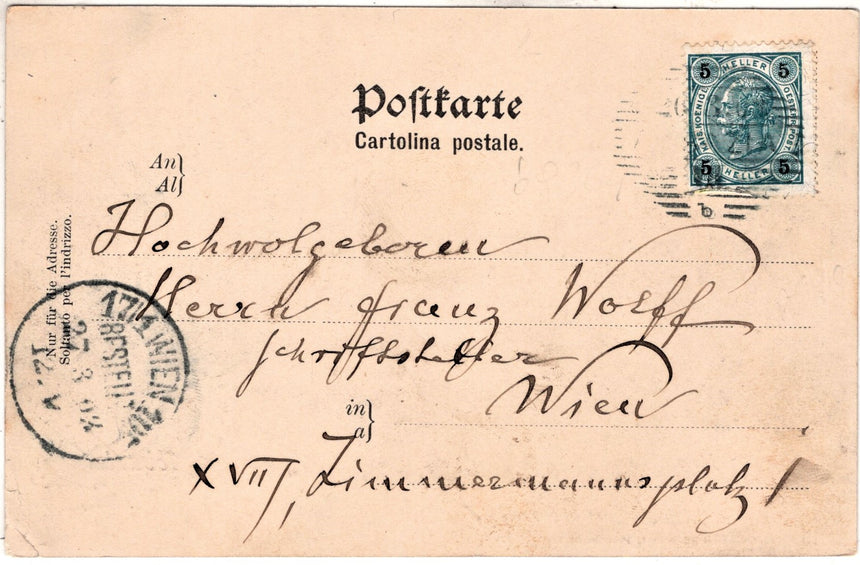 Postkarte
Cartolina postale.
5 HELLER 5
KAIS. KOENIGL. OESTERR. POST.
5 HELLER 5
b
An}
Al}
Hochwolgeboren
Herrn Franz Wolff
Schriftsteller
in}
a}
Wien
XVII, Zimmermannsplatz 1
Nur für die Adresse.
Soltanto per l'indrizzo.
17/1 WIEN
BESTELLT
27 3 02